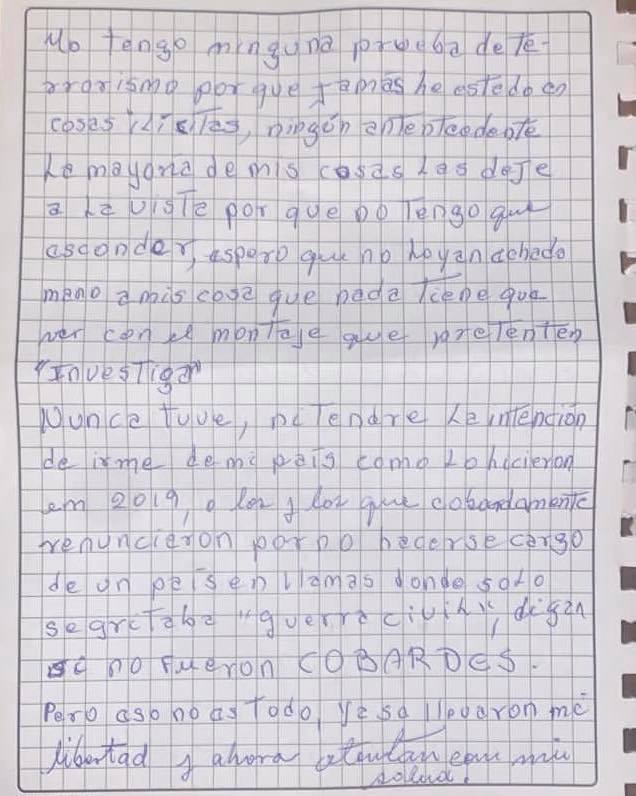 No tengo ninguna prueba de te-
rrorismo por que jamás he estedo en
cosas ilicitas, ningún antentcedente
La mayoria de mis cosas las deje
a la vista por que no tengo que
esconder, espero que no hayan echado
mano a mis cosa que nada tiene que
ver con el montaje que pretenten
"Investigar"
Nunca tuve, ni tendre la intención
de irme de mi país como lo hicieron
em 2019, o los y los que cobardamente
renunciaron por no hacerse cargo
de un país en llamas donde solo
se gritaba "guerra civil", digan
si no fueron COBARDES.
Pero eso no es todo, ya se llevaron mi
libertad y ahora atentan com miu
salud.